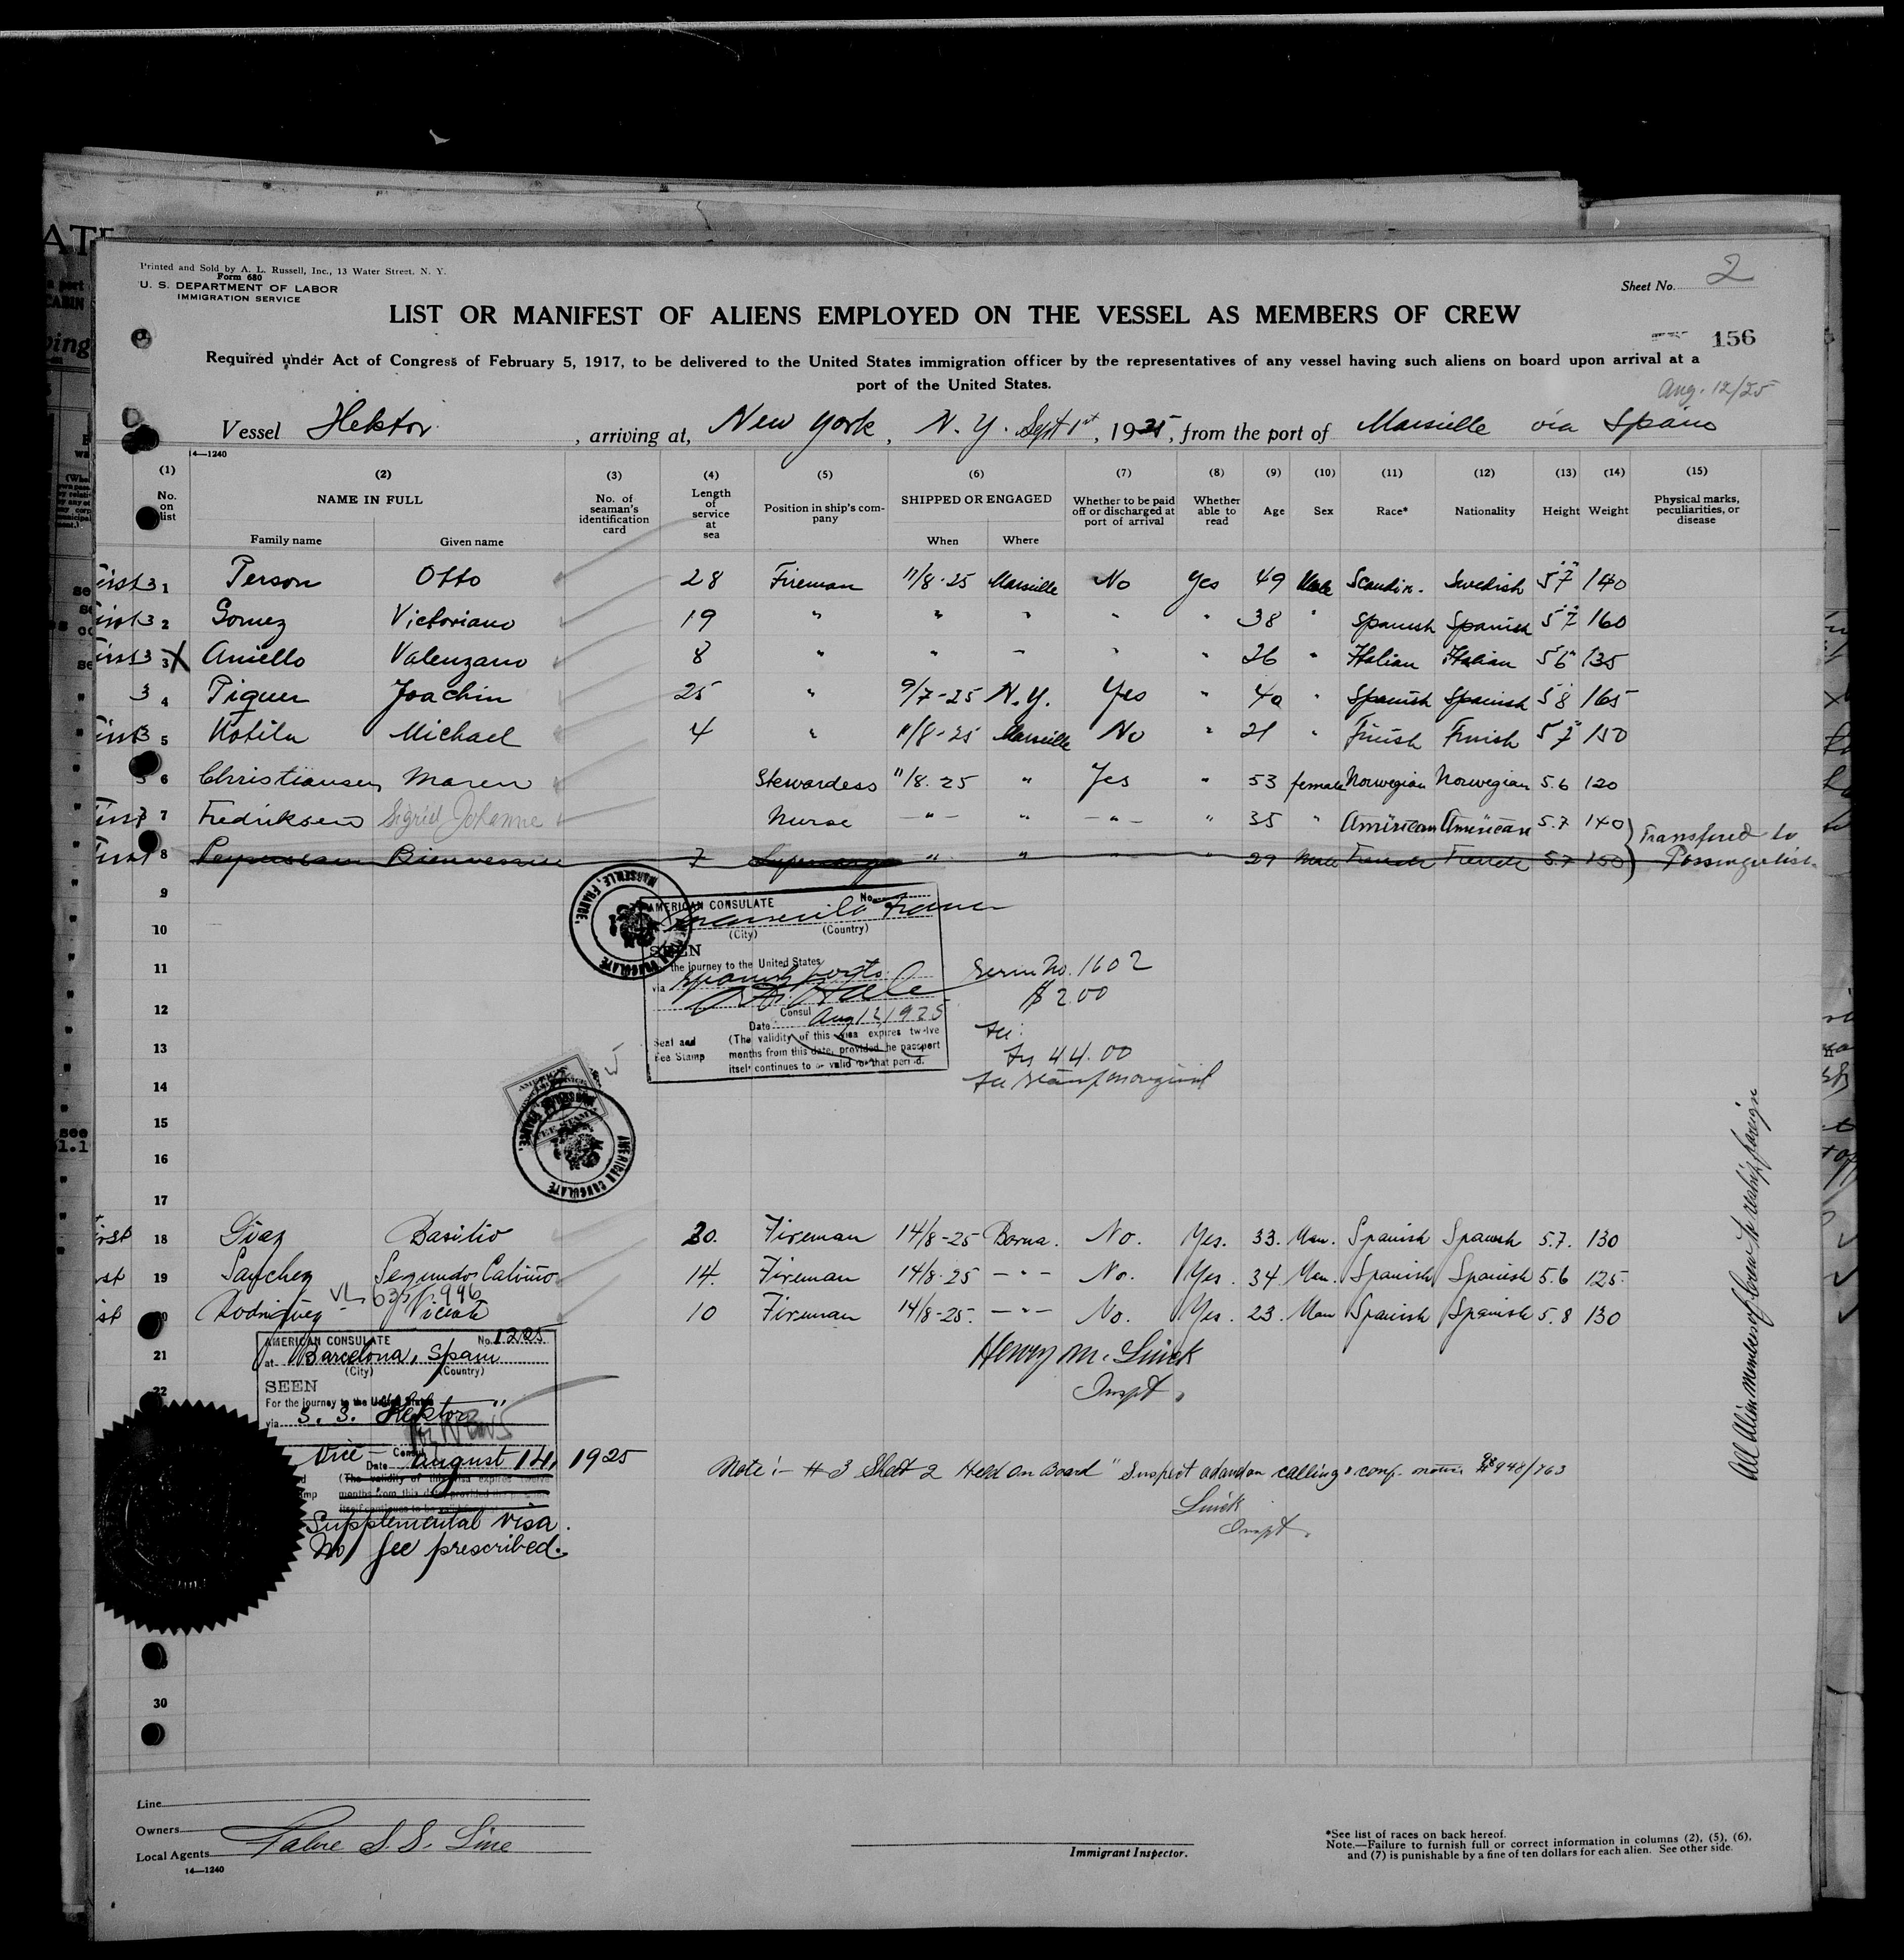 Printed and Sold by A. L. Russell, Inc., 13 Water Street, N. Y.
Form 680
U. S. DEPARTMENT OF LABOR
IMMIGRATION SERVICE
Sheet No. 2
LIST OR MANIFEST OF ALIENS EMPLOYED ON THE VESSEL AS MEMBERS OF CREW
156
Required under Act of Congress of February 5, 1917, to be delivered to the United States immigration officer by the representatives of any vessel having such aliens on board upon arrival at a
port of the United States.
Aug. 12/25
Vessel Hektor, arriving at, New York, N. Y. Sept 1st, 1925, from the port of Marsielle via Spain
14—1240
(1) (2) (3) (4) (5) (6) (7) (8) (9) (10) (11) (12) (13) (14) (15)
No. on list NAME IN FULL No. of seaman's identification card Length of service at sea Position in ship's company SHIPPED OR ENGAGED Whether to be paid off or discharged at port of arrival Whether able to read Age Sex Race* Nationality Height Weight Physical marks, peculiarities, or disease
Family name Given name When Where
first 3 1 Person Otto 28 Fireman 11/8-25 Marsielle No Yes 49 Male Scandin. Swedish 5 7 140
first 3 2 Gomez Victoriano 19 " " " " " 38 " Spanish Spanish 5 7 160
first 3 3 X Aniello Valenzano 8 " " " " " 26 " Italian Italian 5 6 135
3 4 Piquer Joachin 25 " 9/7-25 N.Y. Yes " 40 " Spanish Spanish 5 8 165
first 3 5 Kotila Michael 4 " 11/8-25 Marseille No " 21 " Finish Finish 5 7 150
3 6 Christiansen Maren Stewardess 11/8.25 " Yes " 53 female Norwegian Norwegian 5.6 120
first 7 Fredriksen Sigrid Johanne Nurse " " " " 35 " American American 5.7 140
Transfered to
first 8 7 " " " " 29 Male French French 5.7 150 Passengerlist
9
10
11
12
13
14
15
16
17
MARSEILLE, FRANCE.
AMERICAN CONSULATE
AMERICAN CONSULATE No.
Marseille France
(City) (Country)
SEEN
For the journey to the United States
via Spanish ports
Consul
Date Aug 12, 1925
Seal and Fee Stamp
(The validity of this visa expires twelve
months from this date, provided the passport
itself continues to be valid for that period.
Serv. No. 1602
$ 2.00
44.00
AMERICAN CONSULATE
FEE STAMP
first 18 Diaz Basilio 20. Fireman 14/8-25 Barna. No. Yes. 33. Man. Spanish Spanish 5.7. 130
first 19 Sanchez Segundo Calviño 14. Fireman 14/8-25 — " — No. Yes. 34 Man. Spanish Spanish 5.6 125
first 20 Rodriguez Vicente 10 Fireman 14/8-25. — " — No. Yes. 23. Man Spanish Spanish 5.8 130
21
22
AMERICAN CONSULATE No. 1225
at Barcelona, Spain
(City) (Country)
SEEN
For the journey to the United States
via S. S. Hektor"
Vice- Consul
Date August 14, 1925
(The validity of this visa expires twelve
months from this date, provided the passport
itself continues to be valid
Supplemental visa.
No fee prescribed.
Henry M. Linick
Inspt.
Note:- # 3 Sheet 2 Held on Board "Suspect
Linick
Inspt.
All Alien members of Crew to reship foreign
30
Line
Owners
Local Agents Fabre S.S. Line
14—1240
Immigrant Inspector.
*See list of races on back hereof.
Note.—Failure to furnish full or correct information in columns (2), (5), (6),
and (7) is punishable by a fine of ten dollars for each alien. See other side.